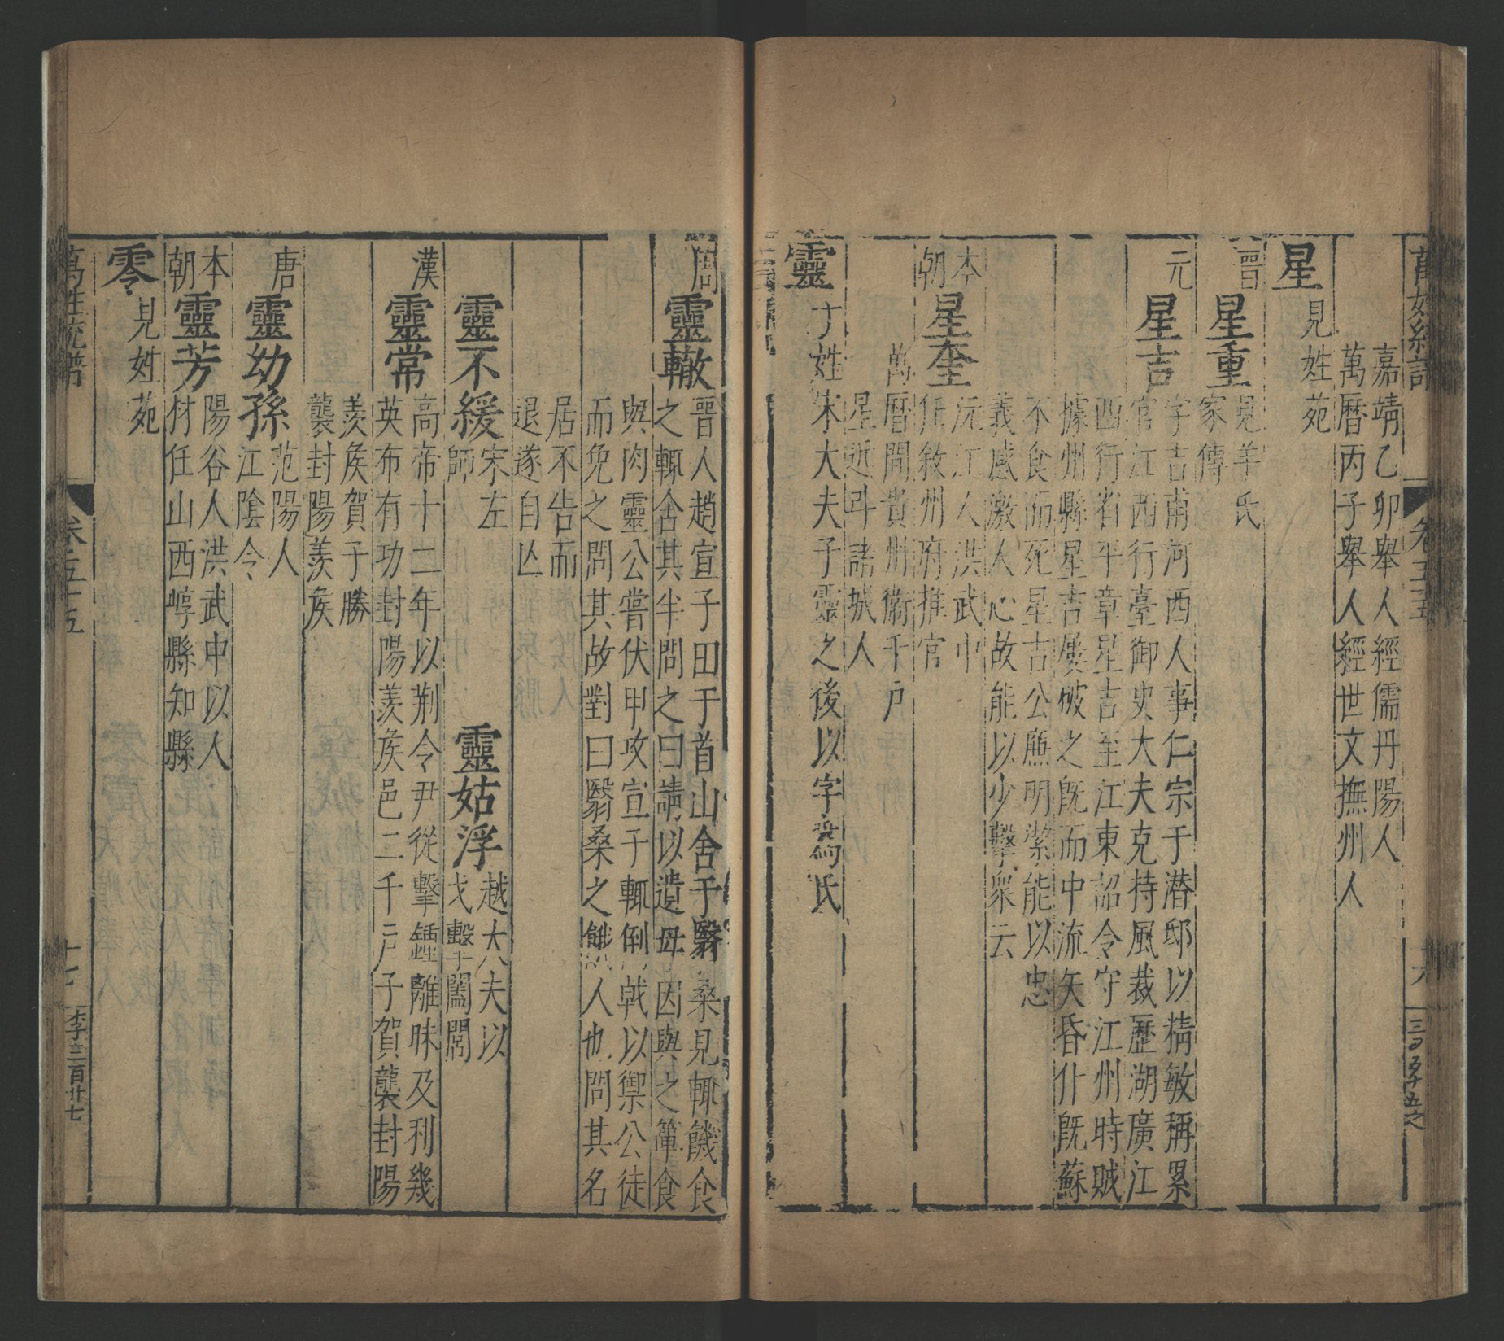 萬姓統譜 卷五十五
嘉靖乙卯舉人經儒丹陽人
萬曆丙子舉人經世文撫州人
星
見姓苑
晉 星重
見羊氏
家傳
元 星吉
字吉甫河西人事仁宗于潛邸以精敏稱累
官江西行臺御史大夫克持風裁歷湖廣江
西行省平章星吉至江東詔令守江州時賊
據州縣星吉屢破之既而中流矢昏仆既蘇
不食而死星吉公廉明潔能以忠
義感激人心故能以少擊衆云
本朝 星奎
沅江人洪武中
任敘州府推官
萬曆間貴州衛千戶
星近斗諸城人
靈
丁姓宋大夫子靈之後以字爲氏
周 靈輒
晉人趙宣子田于首山舍于翳桑見輒饑食
之輒舍其半問之曰請以遺母因與之簞食
與肉靈公嘗伏甲攻宣子輒倒戟以禦公徒
而免之問其故對曰翳桑之餓人也問其名
居不告而
退遂自亡
靈不緩
宋左
師
靈姑浮
越大夫以
戈擊闔閭
漢 靈常
高帝十二年以荆令尹從擊鍾離眛及利幾
英布有功封陽羨矦邑二千戶子賀襲封陽
羨矦賀子勝
襲封陽羨矦
唐 靈幼孫
范陽人
江陰令
本朝 靈芳
陽谷人洪武中以人
材任山西崞縣知縣
零
見姓苑
萬姓統譜 卷五十五 十七 李三百廿七